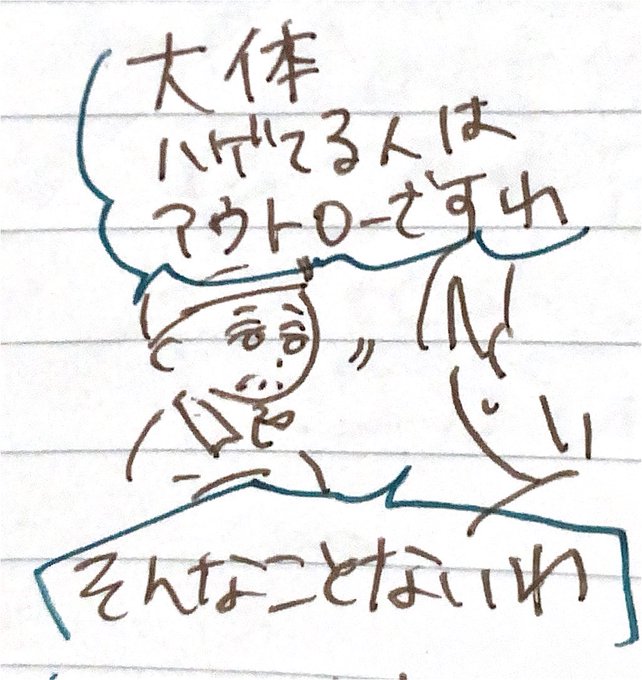 大体
ハゲてる人は
アウトローですわ
そんなことないわ